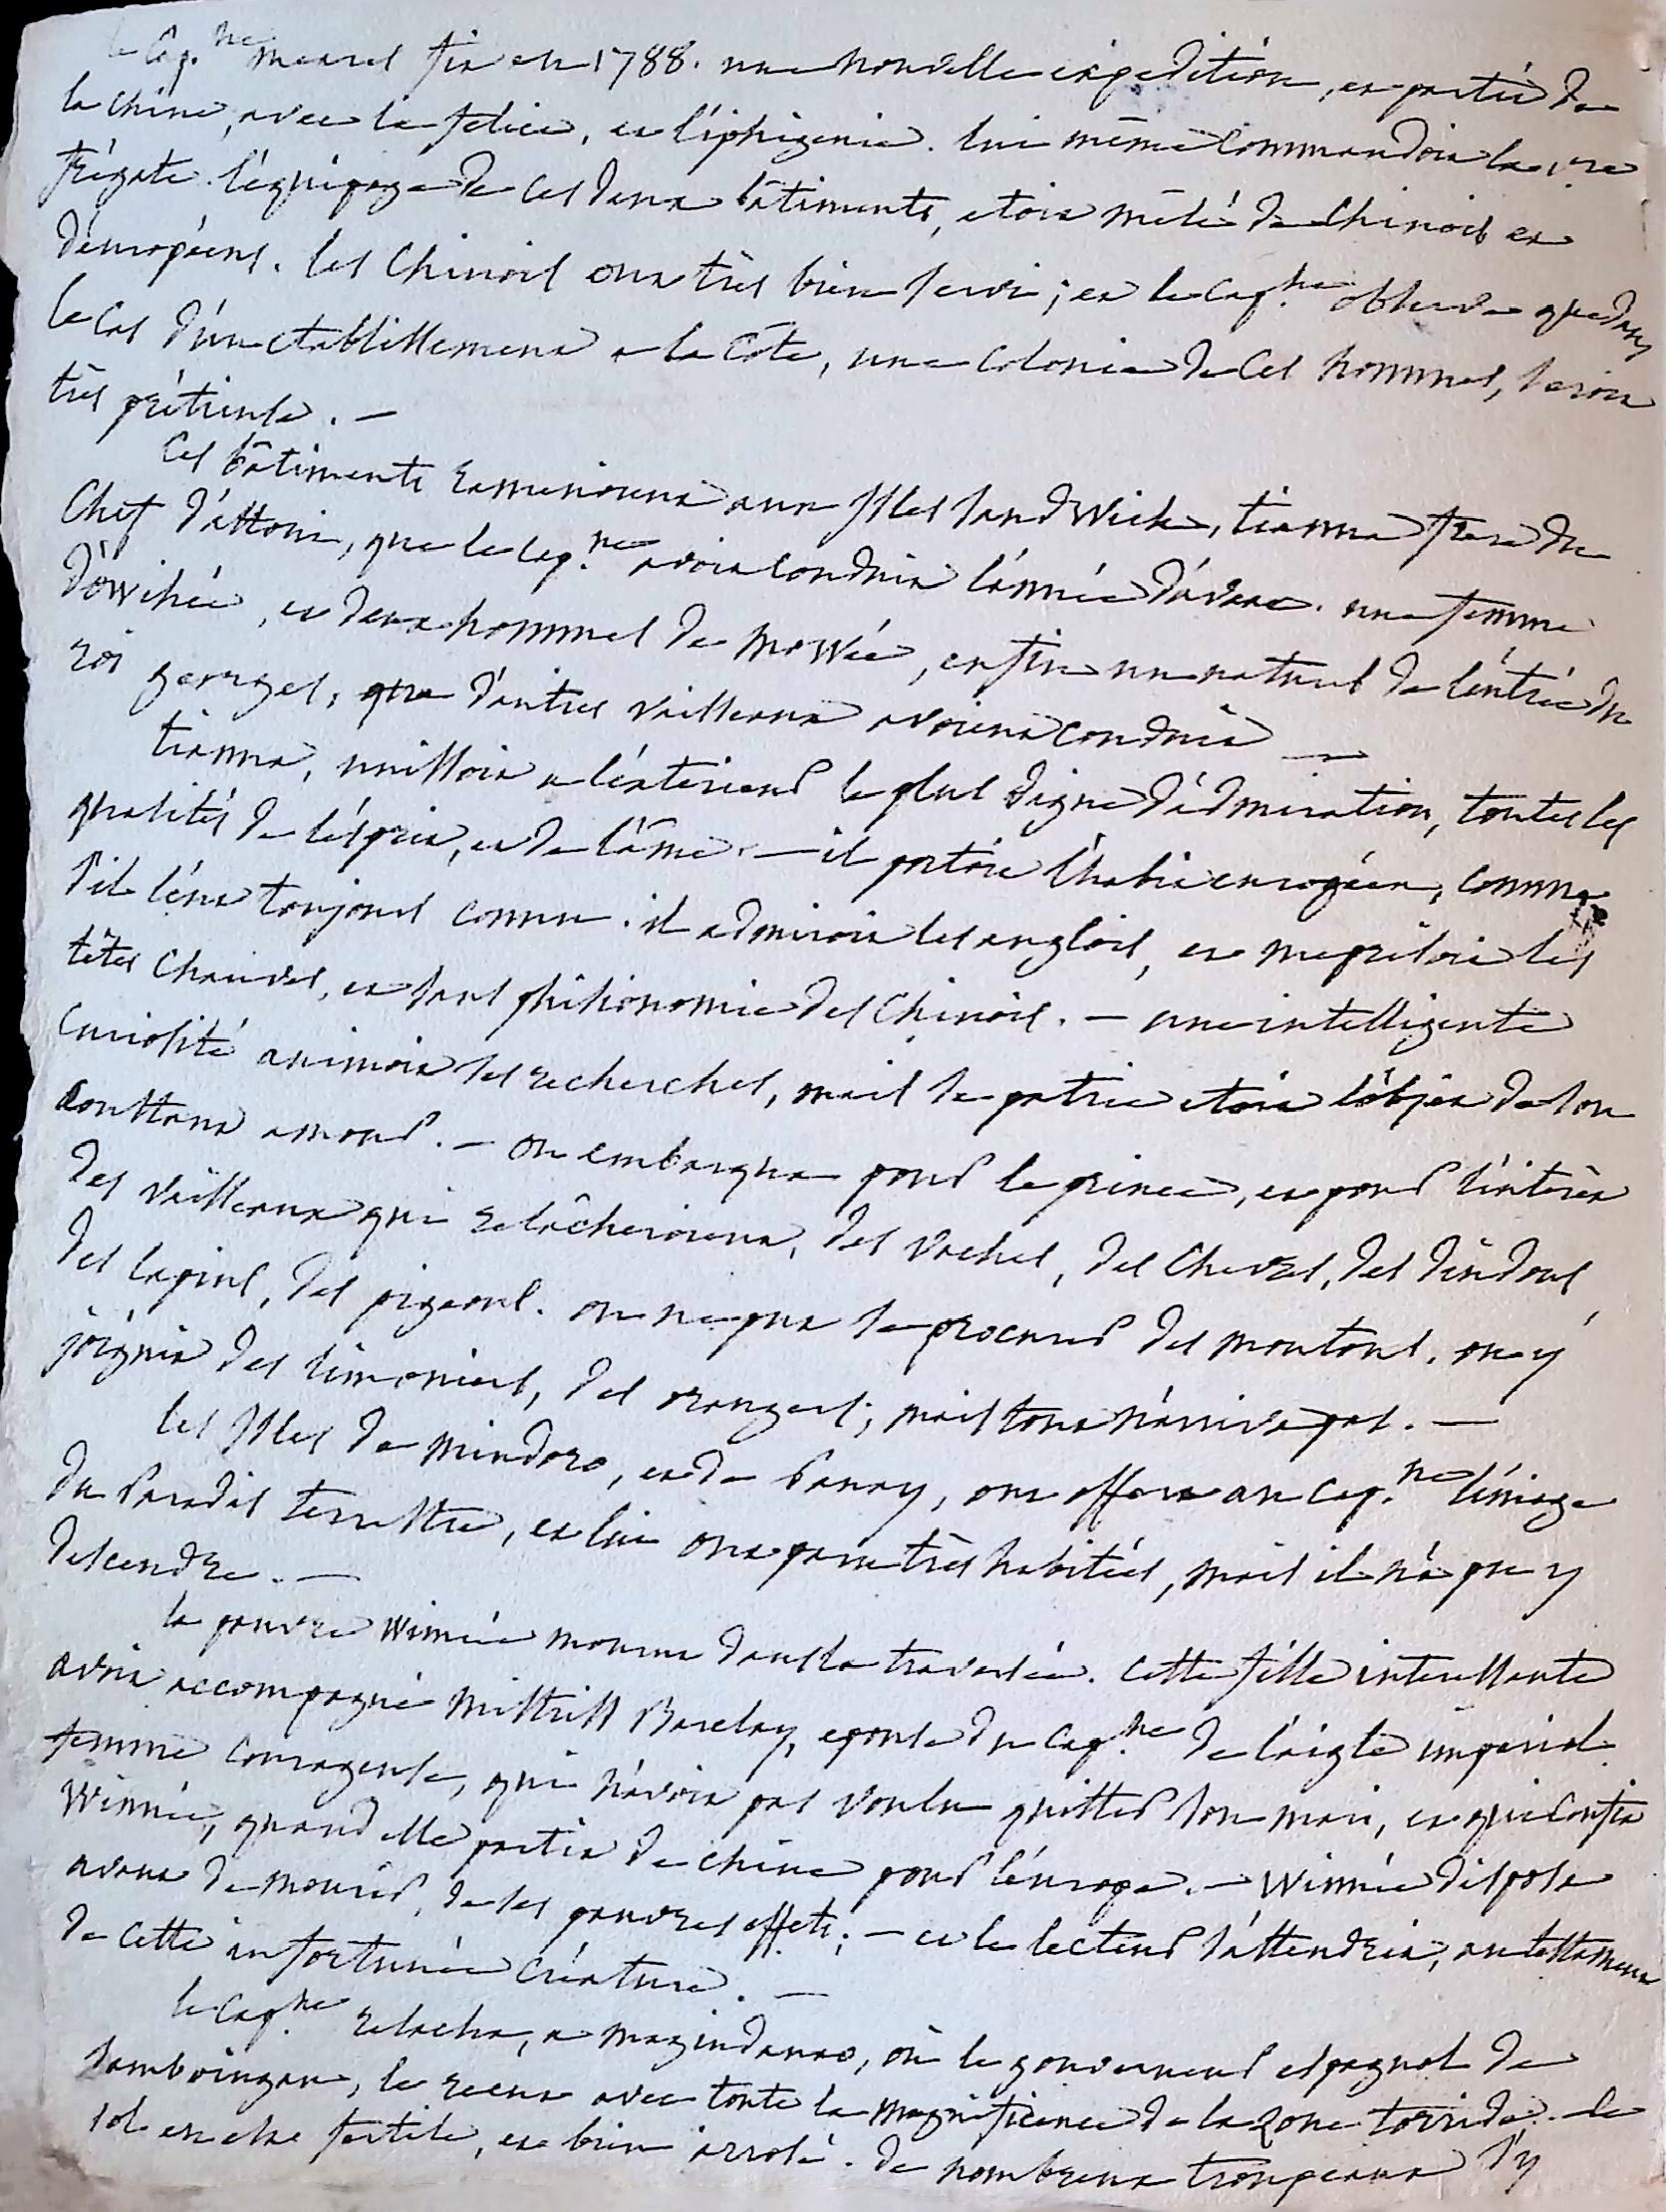 le Cap.ne mears fit en 1788. une nouvelle expedition, et partit de
la chine, avec la felice, et l'iphigenie. lui même commandoit la 1.re
frégate. l'équipage de ces deux bâtiments, etoit mêlé de Chinois et
d'européens. les Chinois ont très bien servi; et le cap.ne observe que dans
le cas d'un etablissement a la côte, une colonie de ces hommes, seroit
très prétieuse. —
Ces bâtiments ramenoient aux Isles Sandwich, tianna frere du
Chef d'attoui, que le cap.ne avoit conduit l'année d'avant. une femme
d'owihée, et deux hommes de mowée, enfin un naturel de l'entrée du
roi georges, que d'autres vaisseaux avoient conduit —
tianna, unissoit a l'exterieur le plus digne d'admiration, toutes les
qualités de l'esprit, et de l'âme. — il portoit l'habit européen, comme
s'il l'eut toujours connu. il admiroit les anglois, et meprisoit les
têtes chauves, et sans phisionomie des Chinois. — une intelligente
curiosité animoit ses recherches, mais sa patrie etoit l'objet de son
constant amour. — on embarqua pour le prince, et pour l'intérêt
des vaisseaux qui relâcheroient, des vaches, des chevres, des dindons,
des lapins, des pigeons. on ne put se procurer des moutons. on y
joignit des limoniers, des orangers; mais tout n'arriva pas. —
les Isles de mindoro, et de Panay, ont offert au cap.ne l'image
du Paradis terrestre, et lui ont paru très habitées, mais il n'a pu y
descendre. —
la pauvre Winnée mourut dans la traversée. cette fille interessante
avoit accompagné mistriss Barclay, epouse du cap.ne de l'aigle imperial.
femme courageuse, qui n'avoit pas voulu quitter son mari, et qui confia
Winnée, quand elle partit de chine pour l'europe. — Winnée disposa
avant de mourir, de ses pauvres effets; — et le lecteur s'attendrit, au testament
de cette infortunée créature. —
le cap.ne relacha, a magindanao, où le gouverneur espagnol de
Samboingan, le recut avec toute la magnificence de la zone torride. le
sol en est fertile, et bien arrosé. de nombreux troupeaux s'y